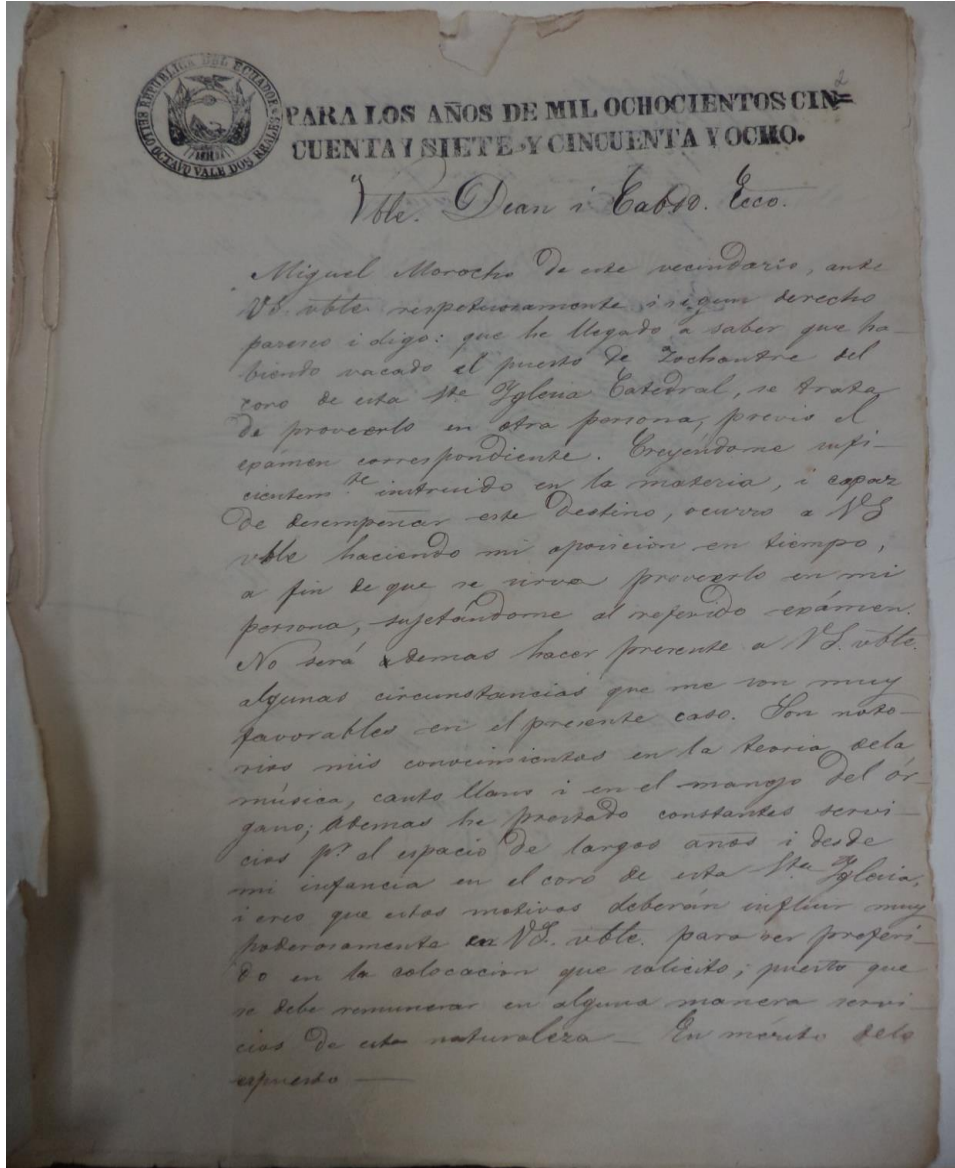 2
REPUBLICA DEL ECUADOR
SELLO OCTAVO VALE DOS REALES
PARA LOS AÑOS DE MIL OCHOCIENTOS CIN=
CUENTA Y SIETE Y CINCUENTA Y OCHO.
Vble. Dean i Cabdo. Ecco.
Miguel Morocho de este vecindario, ante
VS vble. respetuosamente i segun derecho
paresco i digo: que he llegado a saber que ha-
biendo vacado el puesto de Zochantre del
coro de esta Sta Yglesia Catedral, se trata
de proveerlo en otra persona, previo el
exámen correspondiente. Creyéndome sufi-
cientemte instruido en la materia, i capaz
de desempeñar este destino, ocurro a VS
vble haciendo mi oposicion en tiempo,
a fin de que se sirva proveerlo en mi
persona, sujetándome al referido exámen.
No será ademas hacer presente a VS. vble.
algunas circunstancias que me son muy
favorables en el presente caso. Son noto-
rios mis conocimientos en la teoria dela
música, canto llano i en el manejo del ór-
gano; ademas he prestado constantes servi-
cios pr. el espacio de largos años i desde
mi infancia en el coro de esta Sta Yglesia,
i creo que estos motivos deberán influir muy
poderosamente en VS. vble. para ser preferi-
do en la colocacion que solicito; puesto que
se debe remunerar en alguna manera servi-
cios de esta naturaleza — En mérito delo
espuesto —